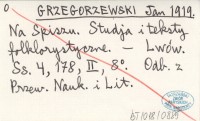 0
GRZEGORZEWSKI Jan 1919.
Na Spiszu. Studja i teksty
folklorystyczne. — Lwów.
Ss. 4, 178, II, 8°. Odb. z
Przew. Nauk. i Lit.